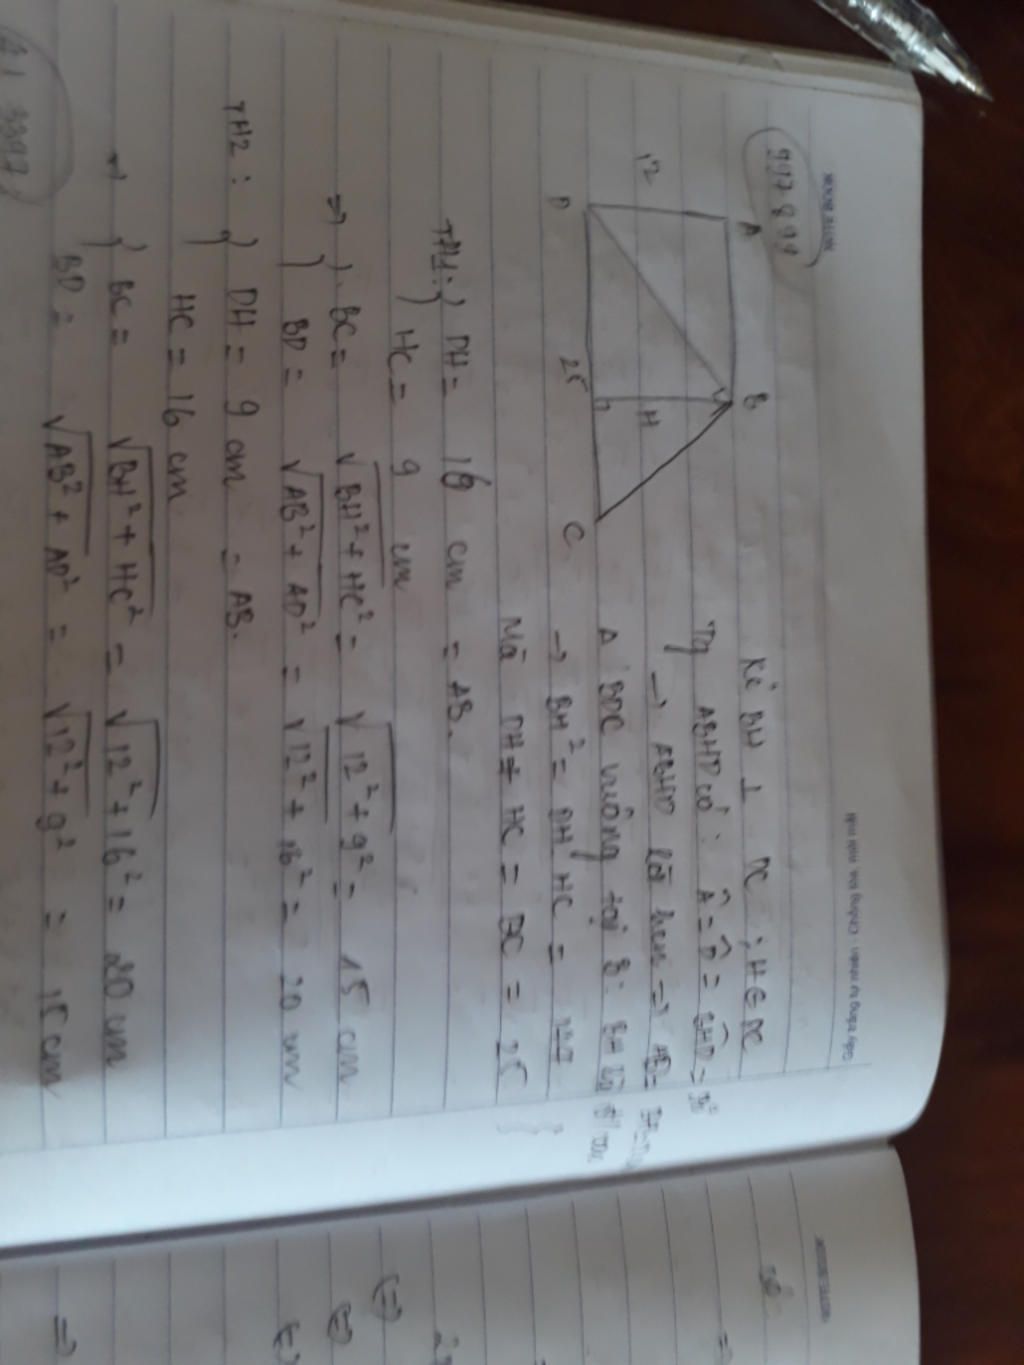 997899
A
B
12
H
D
25
C
Kẻ BH ⊥ DC ; H ∈ DC
Tg ABHD có : Â = D̂ = BHD = 90°
→ ABHD là hcn ⇒ AB =
Δ BDC vuông tại B: BH là đ/cao
→ BH² = DH HC =
Mà DH + HC = BC = 25
TH1: ) DH = 16 cm = AB.
) HC = 9 cm
⇒ ) BC = √BH² + HC² = √12² + 9² = 15 cm
) BD = √AB² + AD² = √12² + 16² = 20 cm
TH2 : ) DH = 9 cm = AB.
HC = 16 cm
→ ) BC = √BH² + HC² = √12² + 16² = 20 cm
BD = √AB² + AD² = √12² + 9² = 15 cm